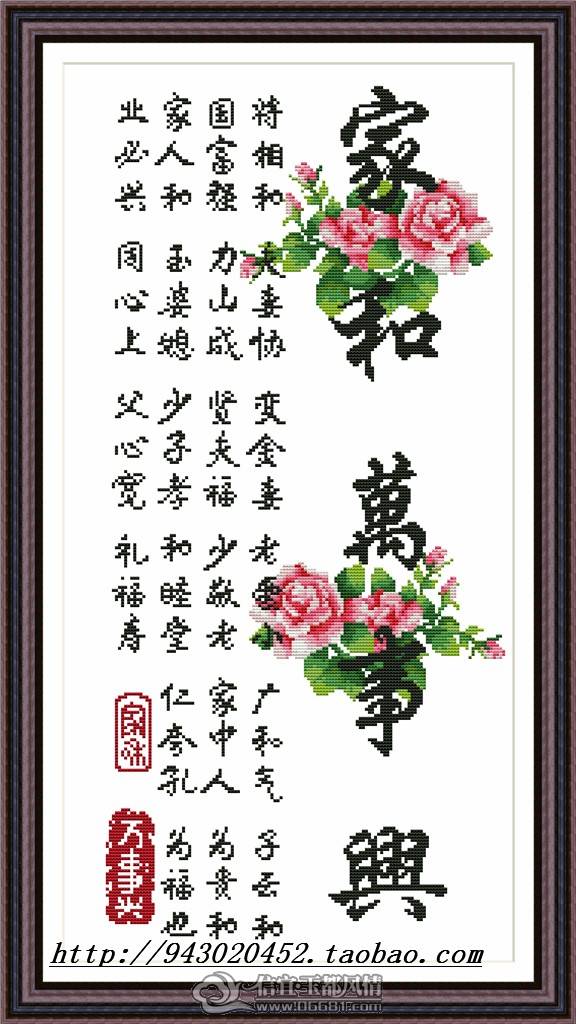 家和萬事興
将相和
国富强
家人和
业必兴
夫妻协
力山成
玉婆媳
同心上
变金妻
贤夫福
少子孝
父心宽
老爱小
少敬老
和睦堂
礼福寿
广和气
家中人
仁夸孔
子云和
为贵和
为福也
家和
万事兴
http://943020452.taobao.com
信宜玉都风情
www.06681.com